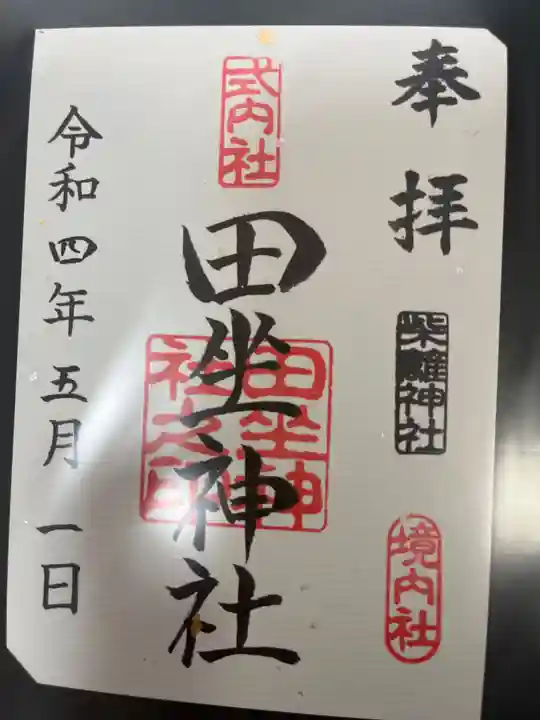 奉拝
柴籬神社
境内社
式内社
田坐神社
田坐神社之印
令和四年五月一日